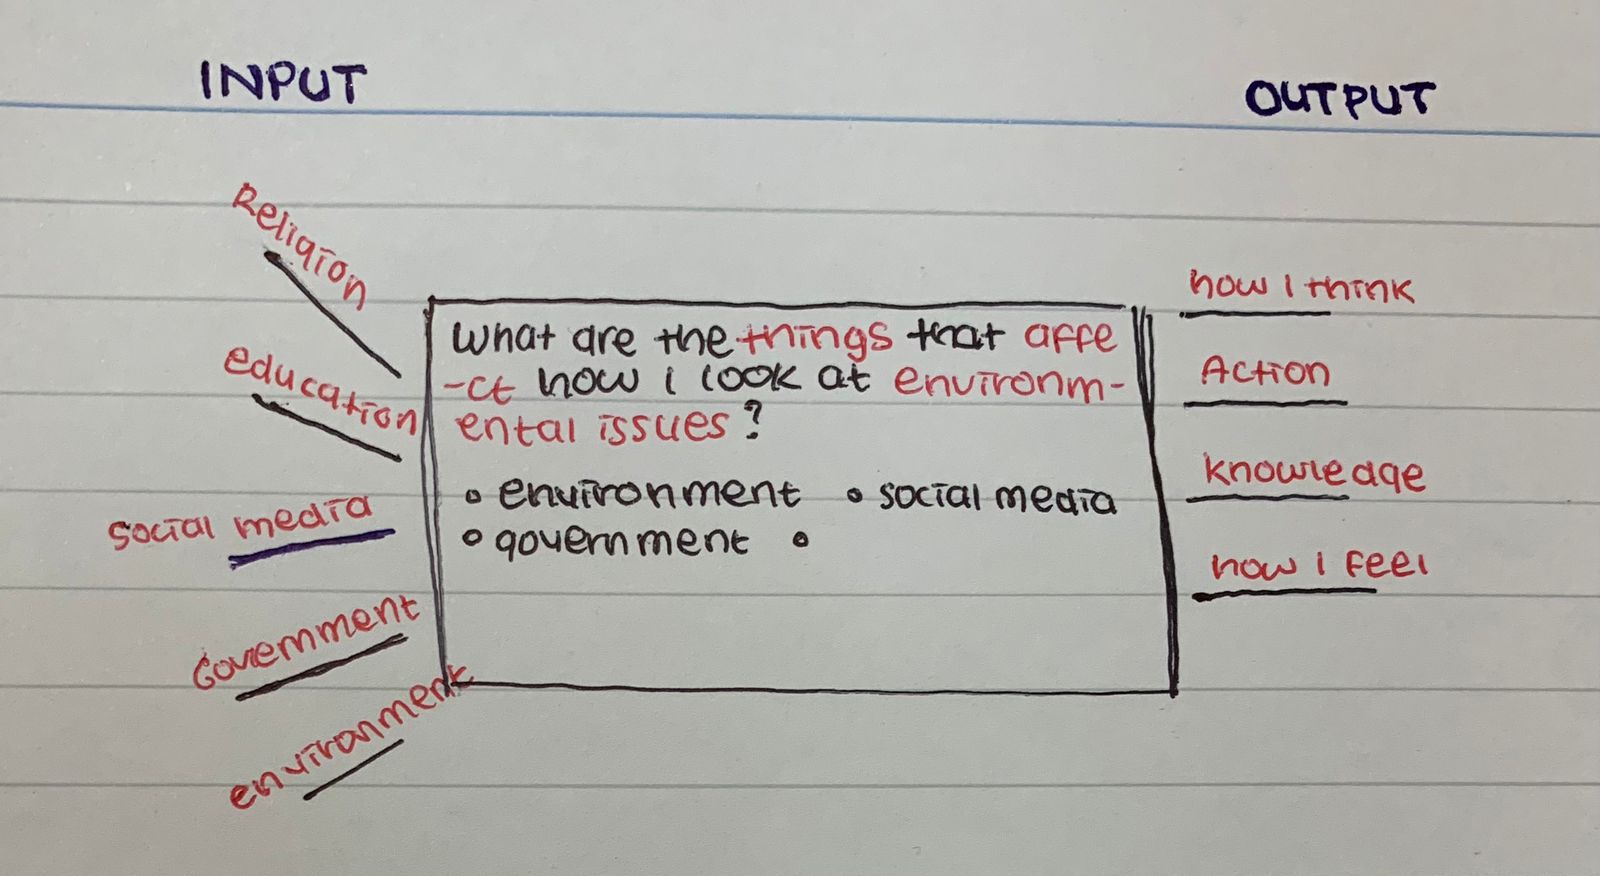 INPUT
OUTPUT
Religion
education
social media
Government
environment
What are the things that affe
-ct how I look at environm-
ental issues?
• environment • social media
• government •
how I think
Action
knowledge
how I feel